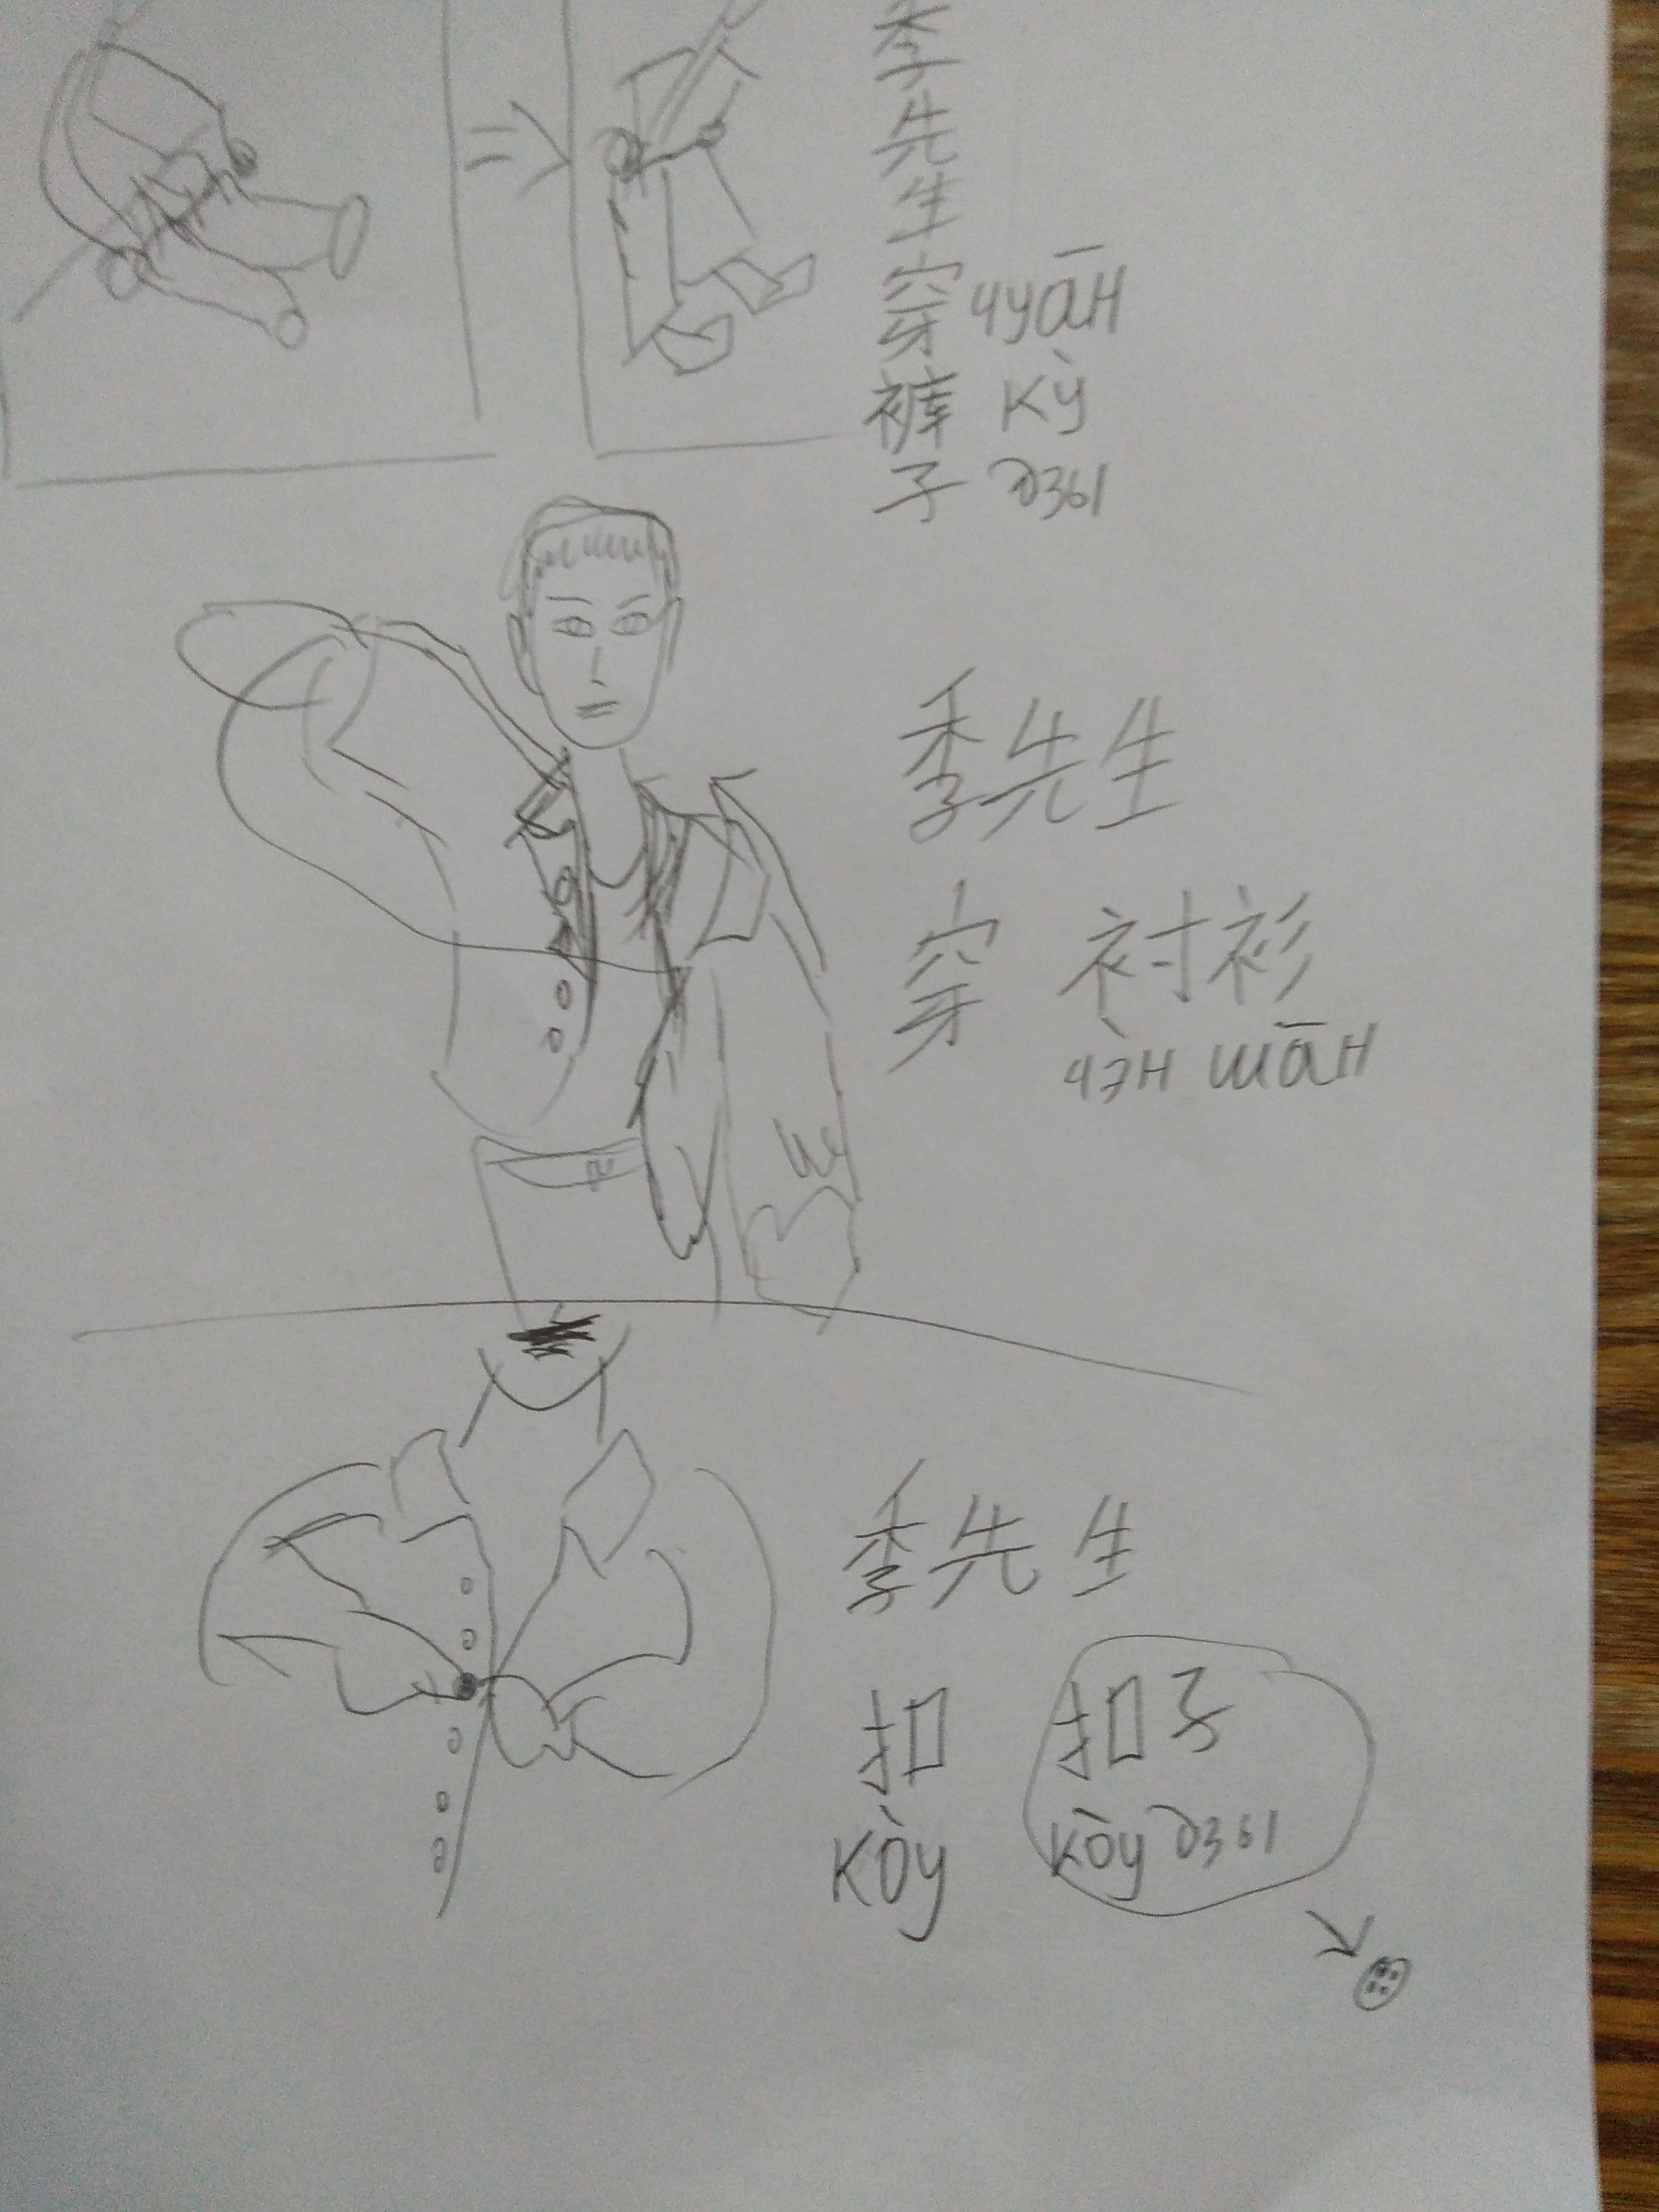 季先生穿裤子
чуāн
кỳ
дзы
季先生
穿 衬衫
чэ̀н шāн
季先生
扣 扣子
кòу кòу дзы